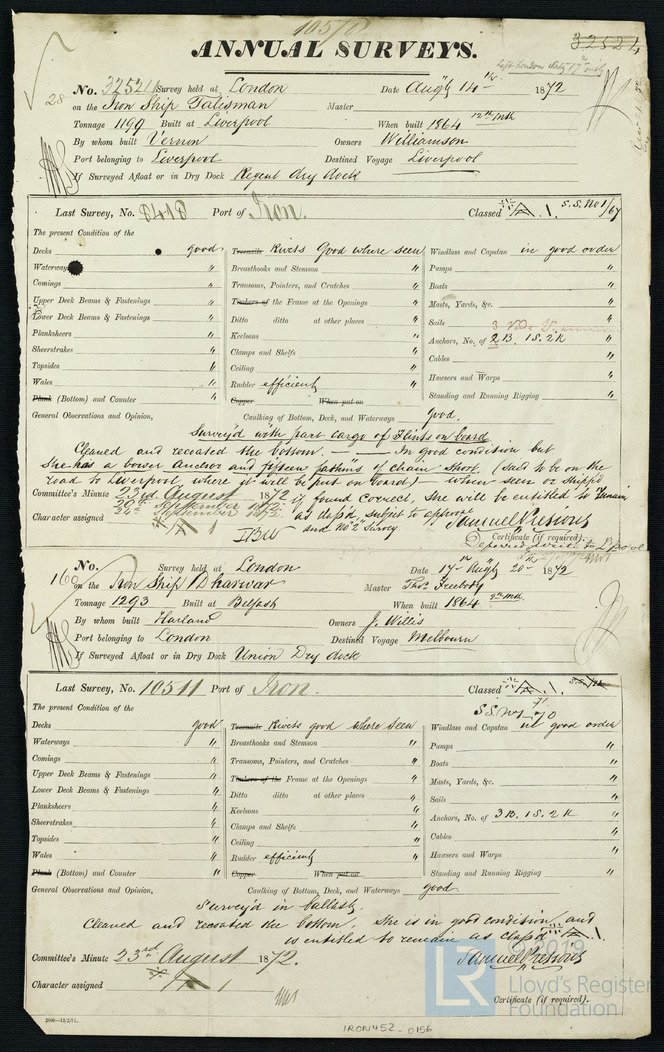 ANNUAL SURVEYS.
32521
No. 32521 Survey held at London Date Augt 14th 1872
28 on the Iron Ship Talisman Master
Tonnage 1199 Built at Liverpool When built 1864 12th Mth
By whom built Vernon Owners Williamson
Port belonging to Liverpool Destined Voyage Liverpool
If Surveyed Afloat or in Dry Dock Regent dry dock
Last Survey, No. 8418 Port of Iron. Classed A. 1. S.S. No 1/67
The present Condition of the
Decks good Treenails Rivets Good where seen Windlass and Capstan in good order
Waterways " Breasthooks and Stemson " Pumps "
Comings " Transoms, Pointers, and Crutches " Boats "
Upper Deck Beams & Fastenings " Timbers of the Frame at the Openings " Masts, Yards, &c. "
Lower Deck Beams & Fastenings " Ditto ditto at other places " Sails "
Planksheers " Keelsons " Anchors, No. of 2 B. 1 S. 2 K "
Sheerstrakes " Clamps and Shelfs " Cables "
Topsides " Ceiling "
Wales " Rudder efficient Hawsers and Warps "
Plank (Bottom) and Counter " Copper When put on Standing and Running Rigging "
General Observations and Opinion, Caulking of Bottom, Deck, and Waterways good
Survey'd with part cargo of Flints on board
Cleaned and recoated the bottom. In good condition but
She has a bower Anchor and fifteen fathms of chain short. (Said to be on the
road to Liverpool, where it will be put on board) when seen or shipp'd
Committee's Minute 23rd August 1872 if found correct, she will be entitled to remain
as class'd, subject to approve
Character assigned A 1 and No 2 Survey. Samuel Pretious
Certificate (if required).
No. Survey held at London Date 17th Augt 20th 1872
160 on the Iron Ship Dharwar Master Thos. Freebody
Tonnage 1293 Built at Belfast When built 1864 Mth
By whom built Harland Owners J. Willis
Port belonging to London Destined Voyage Melbourn
If Surveyed Afloat or in Dry Dock Union Dry dock
Last Survey, No. 10511 Port of Iron. Classed A. 1.
The present Condition of the
Decks good Treenails Rivets good where seen Windlass and Capstan in good order
Waterways " Breasthooks and Stemson " Pumps "
Comings " Transoms, Pointers, and Crutches " Boats "
Upper Deck Beams & Fastenings " Timbers of the Frame at the Openings " Masts, Yards, &c. "
Lower Deck Beams & Fastenings " Ditto ditto at other places " Sails "
Planksheers " Keelsons " Anchors, No. of 3 B. 1 S. 2 K "
Sheerstrakes " Clamps and Shelfs " Cables "
Topsides " Ceiling "
Wales " Rudder efficient Hawsers and Warps "
Plank (Bottom) and Counter " Copper When put on Standing and Running Rigging "
General Observations and Opinion, Caulking of Bottom, Deck, and Waterways good
Survey'd in ballast.
Cleaned and recoated the bottom. She is in good condition, and
is entitled to remain as class'd A. 1.
Committee's Minute 23rd August 1872. Samuel Pretious
Character assigned A 1
Certificate (if required).
© 2019
LR Lloyd's Register
Foundation
IRON452_0156